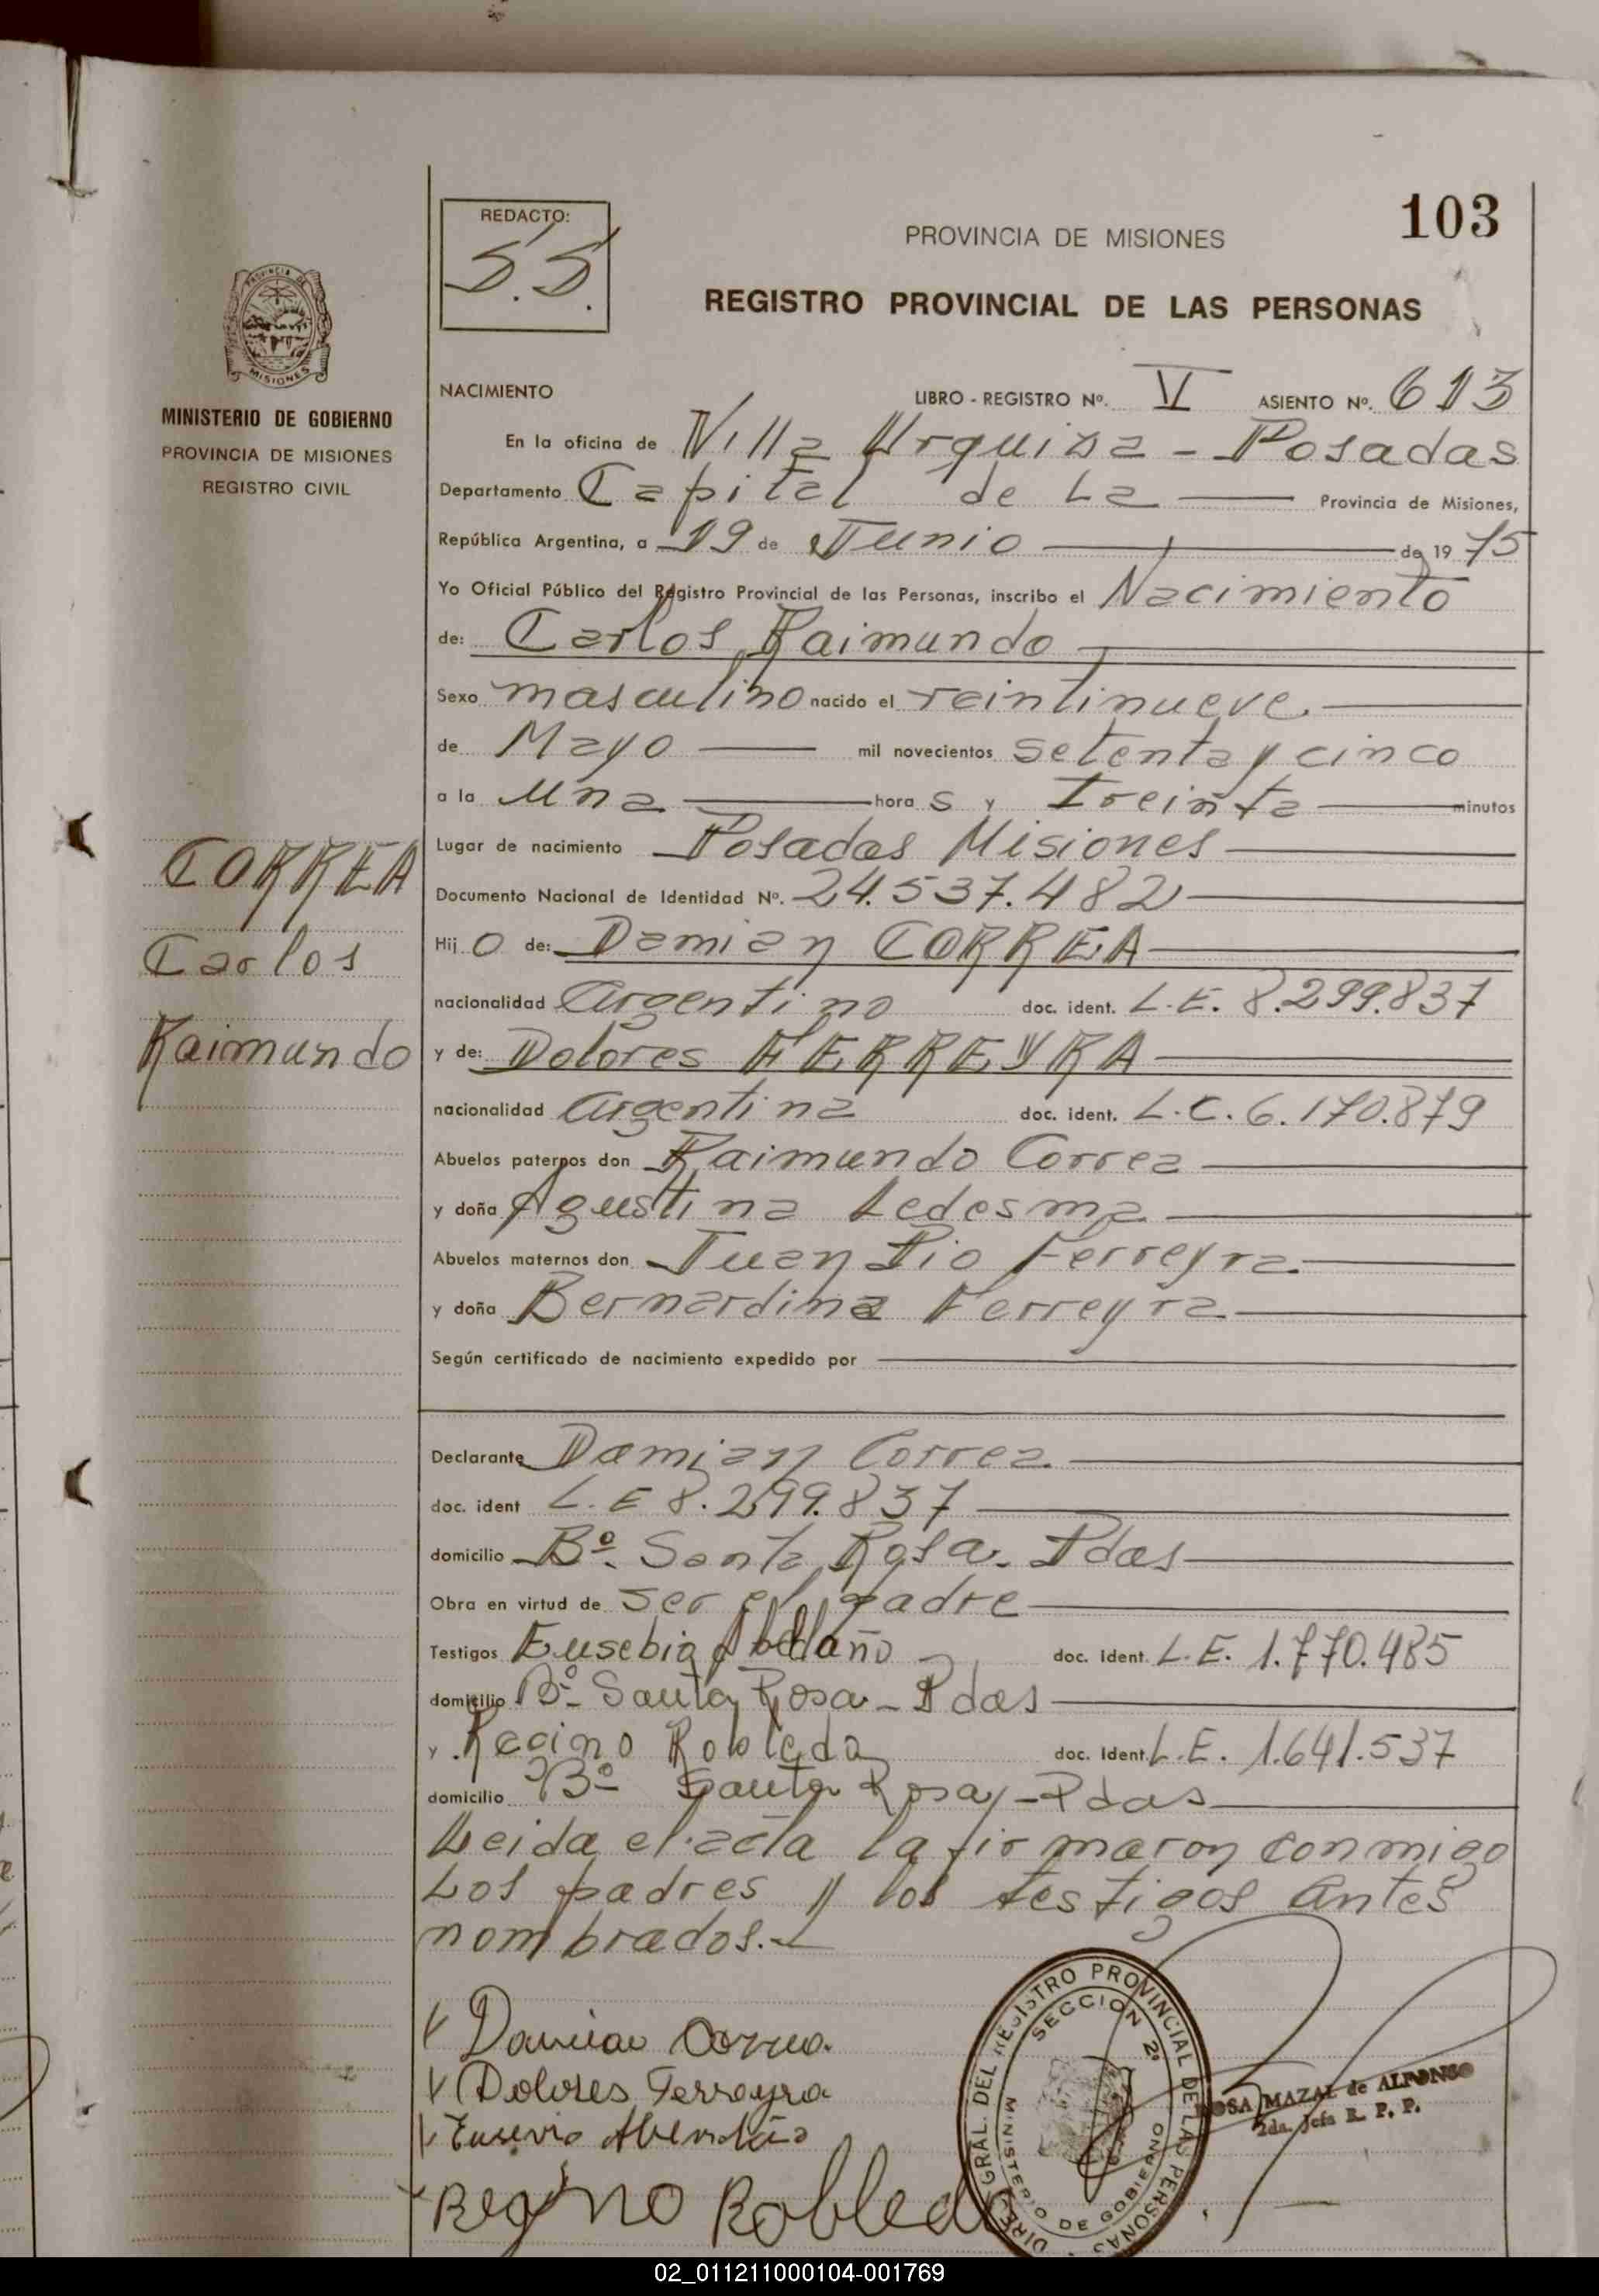 103
REDACTO:
S.S.
PROVINCIA DE MISIONES
REGISTRO PROVINCIAL DE LAS PERSONAS
MISIONES
MINISTERIO DE GOBIERNO
PROVINCIA DE MISIONES
REGISTRO CIVIL
NACIMIENTO LIBRO - REGISTRO Nº. VI ASIENTO Nº. 613
En la oficina de Villa Urquiza - Posadas
Departamento Capital de La Provincia de Misiones,
República Argentina, a 19 de Junio de 1975
Yo Oficial Público del Registro Provincial de las Personas, inscribo el Nacimiento
de: Carlos Raimundo
Sexo masculino nacido el veintinueve
de Mayo mil novecientos setenta y cinco
a la una hora s y Treinta minutos
Lugar de nacimiento Posadas Misiones
CORREA
Documento Nacional de Identidad Nº. 24.537.482
Carlos
Hij o de: Damian CORREA
nacionalidad Argentino doc. ident. L.E. 8.299.837
Raimundo
y de: Dolores FERREYRA
nacionalidad Argentina doc. ident. L.C. 6.170.879
Abuelos paternos don Raimundo Correa
y doña Agustina Ledesma
Abuelos maternos don Juan Pio Ferreyra
y doña Bernardina Ferreyra
Según certificado de nacimiento expedido por
Declarante Damian Correa
doc. ident L.E 8.299.837
domicilio Bº. Santa Rosa. Pdas
Obra en virtud de ser el padre
Testigos Eusebio doc. Ident. L.E. 1.770.485
domicilio Bº Santa Rosa - Pdas
y Regino Robledo doc. Ident. L.E. 1.641.537
domicilio Bº Santa Rosa - Pdas
Leida el acta la firmaron conmigo
Los padres y los testigos antes
nombrados.
Damian Correa.
Dolores Ferreyra
Eusevio
Regino Robledo
DIREC. GRAL. DEL REGISTRO PROVINCIAL DE LAS PERSONAS
SECCION 2ª
MINISTERIO DE GOBIERNO
ROSA MAZAL de ALFONSO
2da. Jefa R. P. P.
02_011211000104-001769